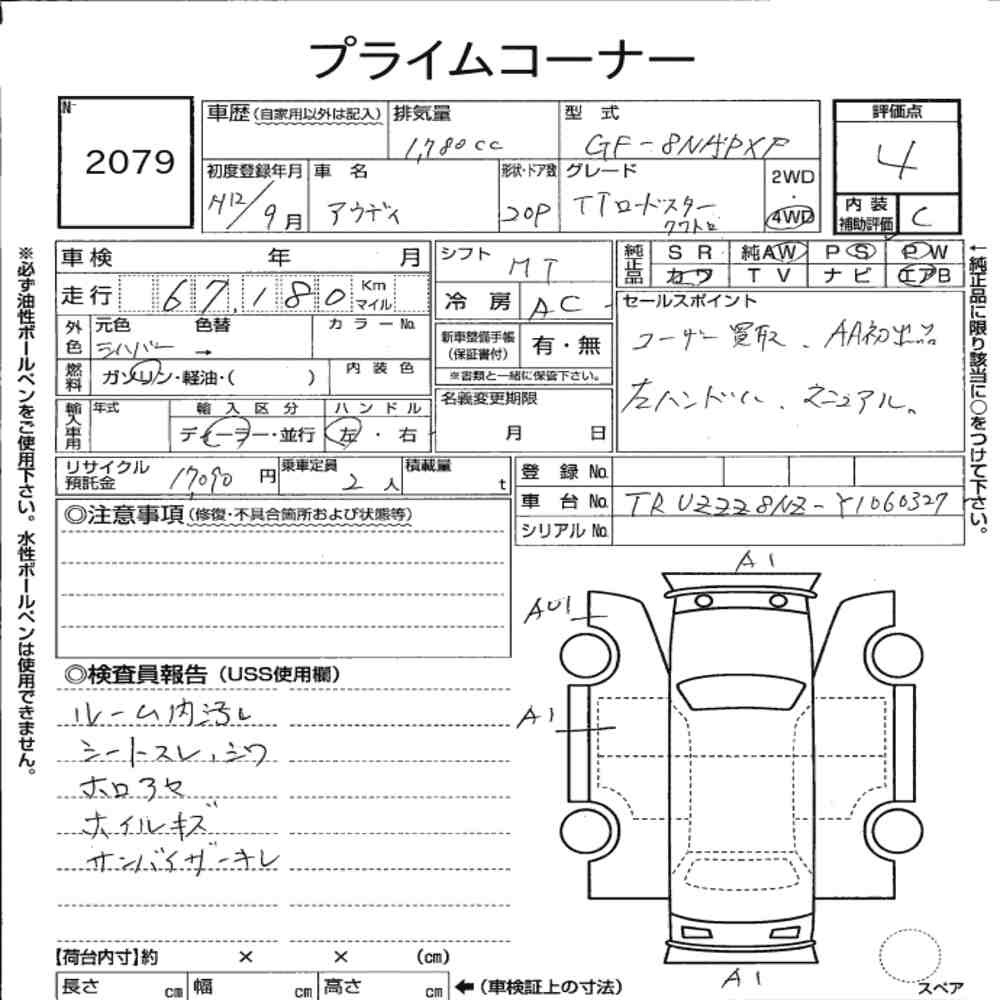 プライムコーナー
№
2079
車歴(自家用以外は記入)
排気量
1,780cc
型 式
評価点
4
初度登録年月
H12/9月
車 名
アウディ
形状・ドア数
グレード
TTロードスター
クワトロ
2WD
・
4WD
内装
補助評価
C
車検 年 月
走行 67,180 Km
マイル
シフト
MT
冷 房
AC
純正品
SR 純AW PS PW
カワ TV ナビ エアB
外色
元色 色替
シルバー →
カラーNo.
燃料
ガソリン・軽油・( )
内装色
新車整備手帳
(保証書付)
有・無
※書類と一緒に保管下さい。
セールスポイント
ユーザー買取、AA初出品
左ハンドル、マニュアル。
輸入車用
年式
輸入区分
ディーラー・並行
ハンドル
左・右
名義変更期限
月 日
リサイクル
預託金
17,090円
乗車定員
2人
積載量
t
登録No.
車台No. TRUZZZ8NZ-Y1060327
シリアルNo.
◎注意事項(修復・不具合箇所および状態等)
◎検査員報告(USS使用欄)
ルーム内汚レ
シートスレ,シワ
ホロアセ
ホイルキズ
サンバイザーキレ
A1
AU1
A1
A1
スペア
【荷台内寸】約 × × (cm)
長さ cm 幅 cm 高さ cm ←(車検証上の寸法)
※必ず油性ボールペンをご使用下さい。水性ボールペンは使用できません。
←純正品に限り該当に○をつけて下さい。